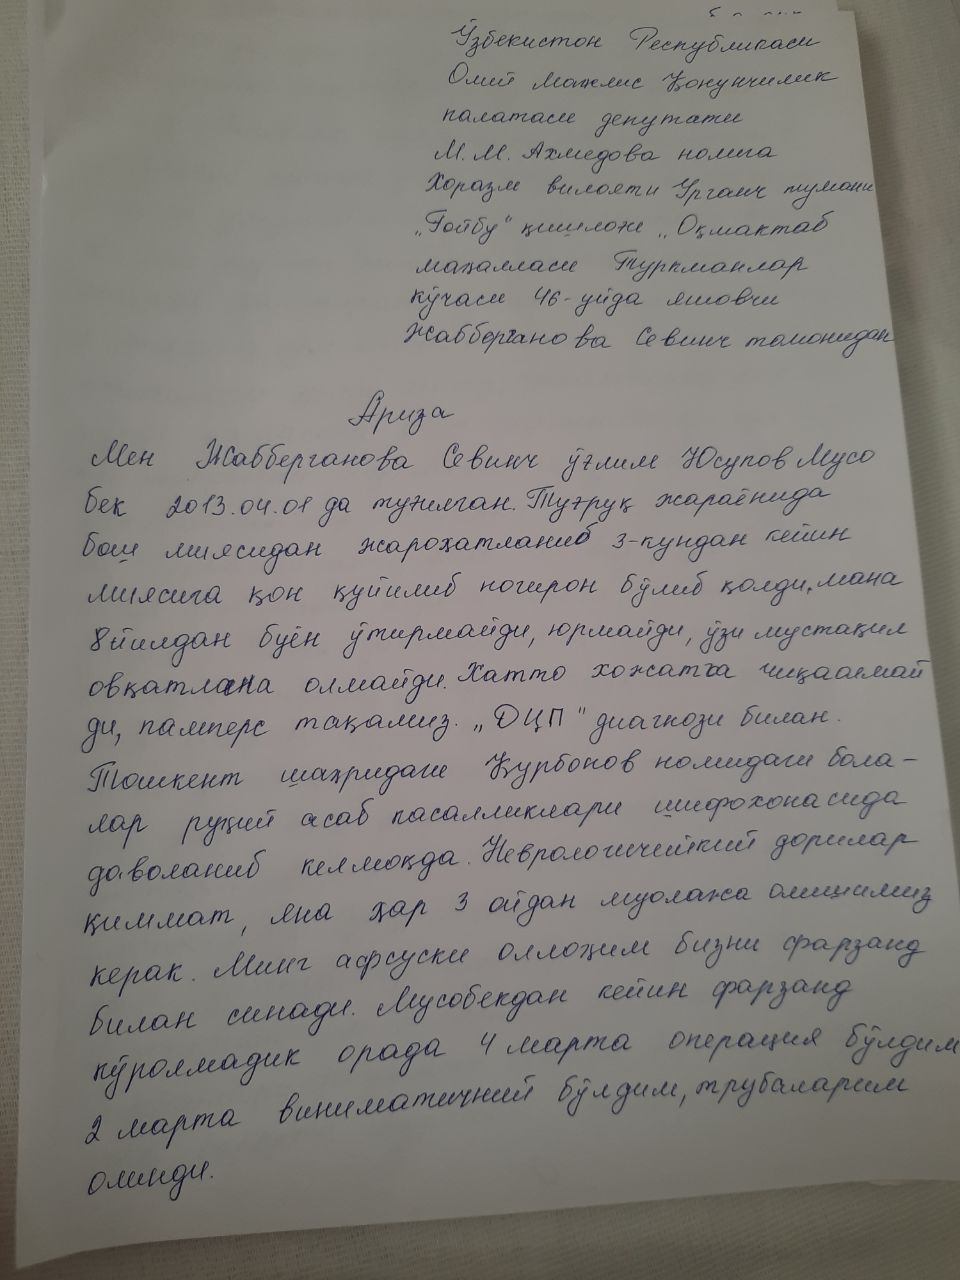 Ўзбекистон Республикаси
Олий Мажлис Қонунчилик
палатаси депутати
М.М. Ахмедова номига
Хоразм вилояти Урганч тумани
„Ғойбу" қишлоғи „Оқмактаб
маҳалласи Туркманлар
кўчаси 46-уйда яшовчи
Жабберганова Севинч томонидан
Ариза
Мен Жабберганова Севинч ўғлим Юсупов Мусо
бек 2013.04.01 да туғилган. Туғруқ жараёнида
бош миясидан жароҳатланиб 3-кундан кейин
миясига қон қуйилиб ногирон бўлиб қолди, мана
8йилдан буён ўтирмайди, юрмайди, ўзи мустақил
овқатлана олмайди. Хатто хожатга чиқаолмай
ди, памперс тақамиз. „ДЦП" диагнози билан.
Тошкент шаҳридаги Қурбонов номидаги бола-
лар руҳий асаб касалликлари шифохонасида
даволаниб келмоқда. Неврологичийкий дорилар
қиммат, яна ҳар 3 ойдан муолажа олишимиз
керак. Минг афсуски оллоҳим бизни фарзанд
билан синади. Мусобекдан кейин фарзанд
кўролмадик орада 4 марта операция бўлдим
2 марта виниматичний бўлдим, трубаларим
олинди.